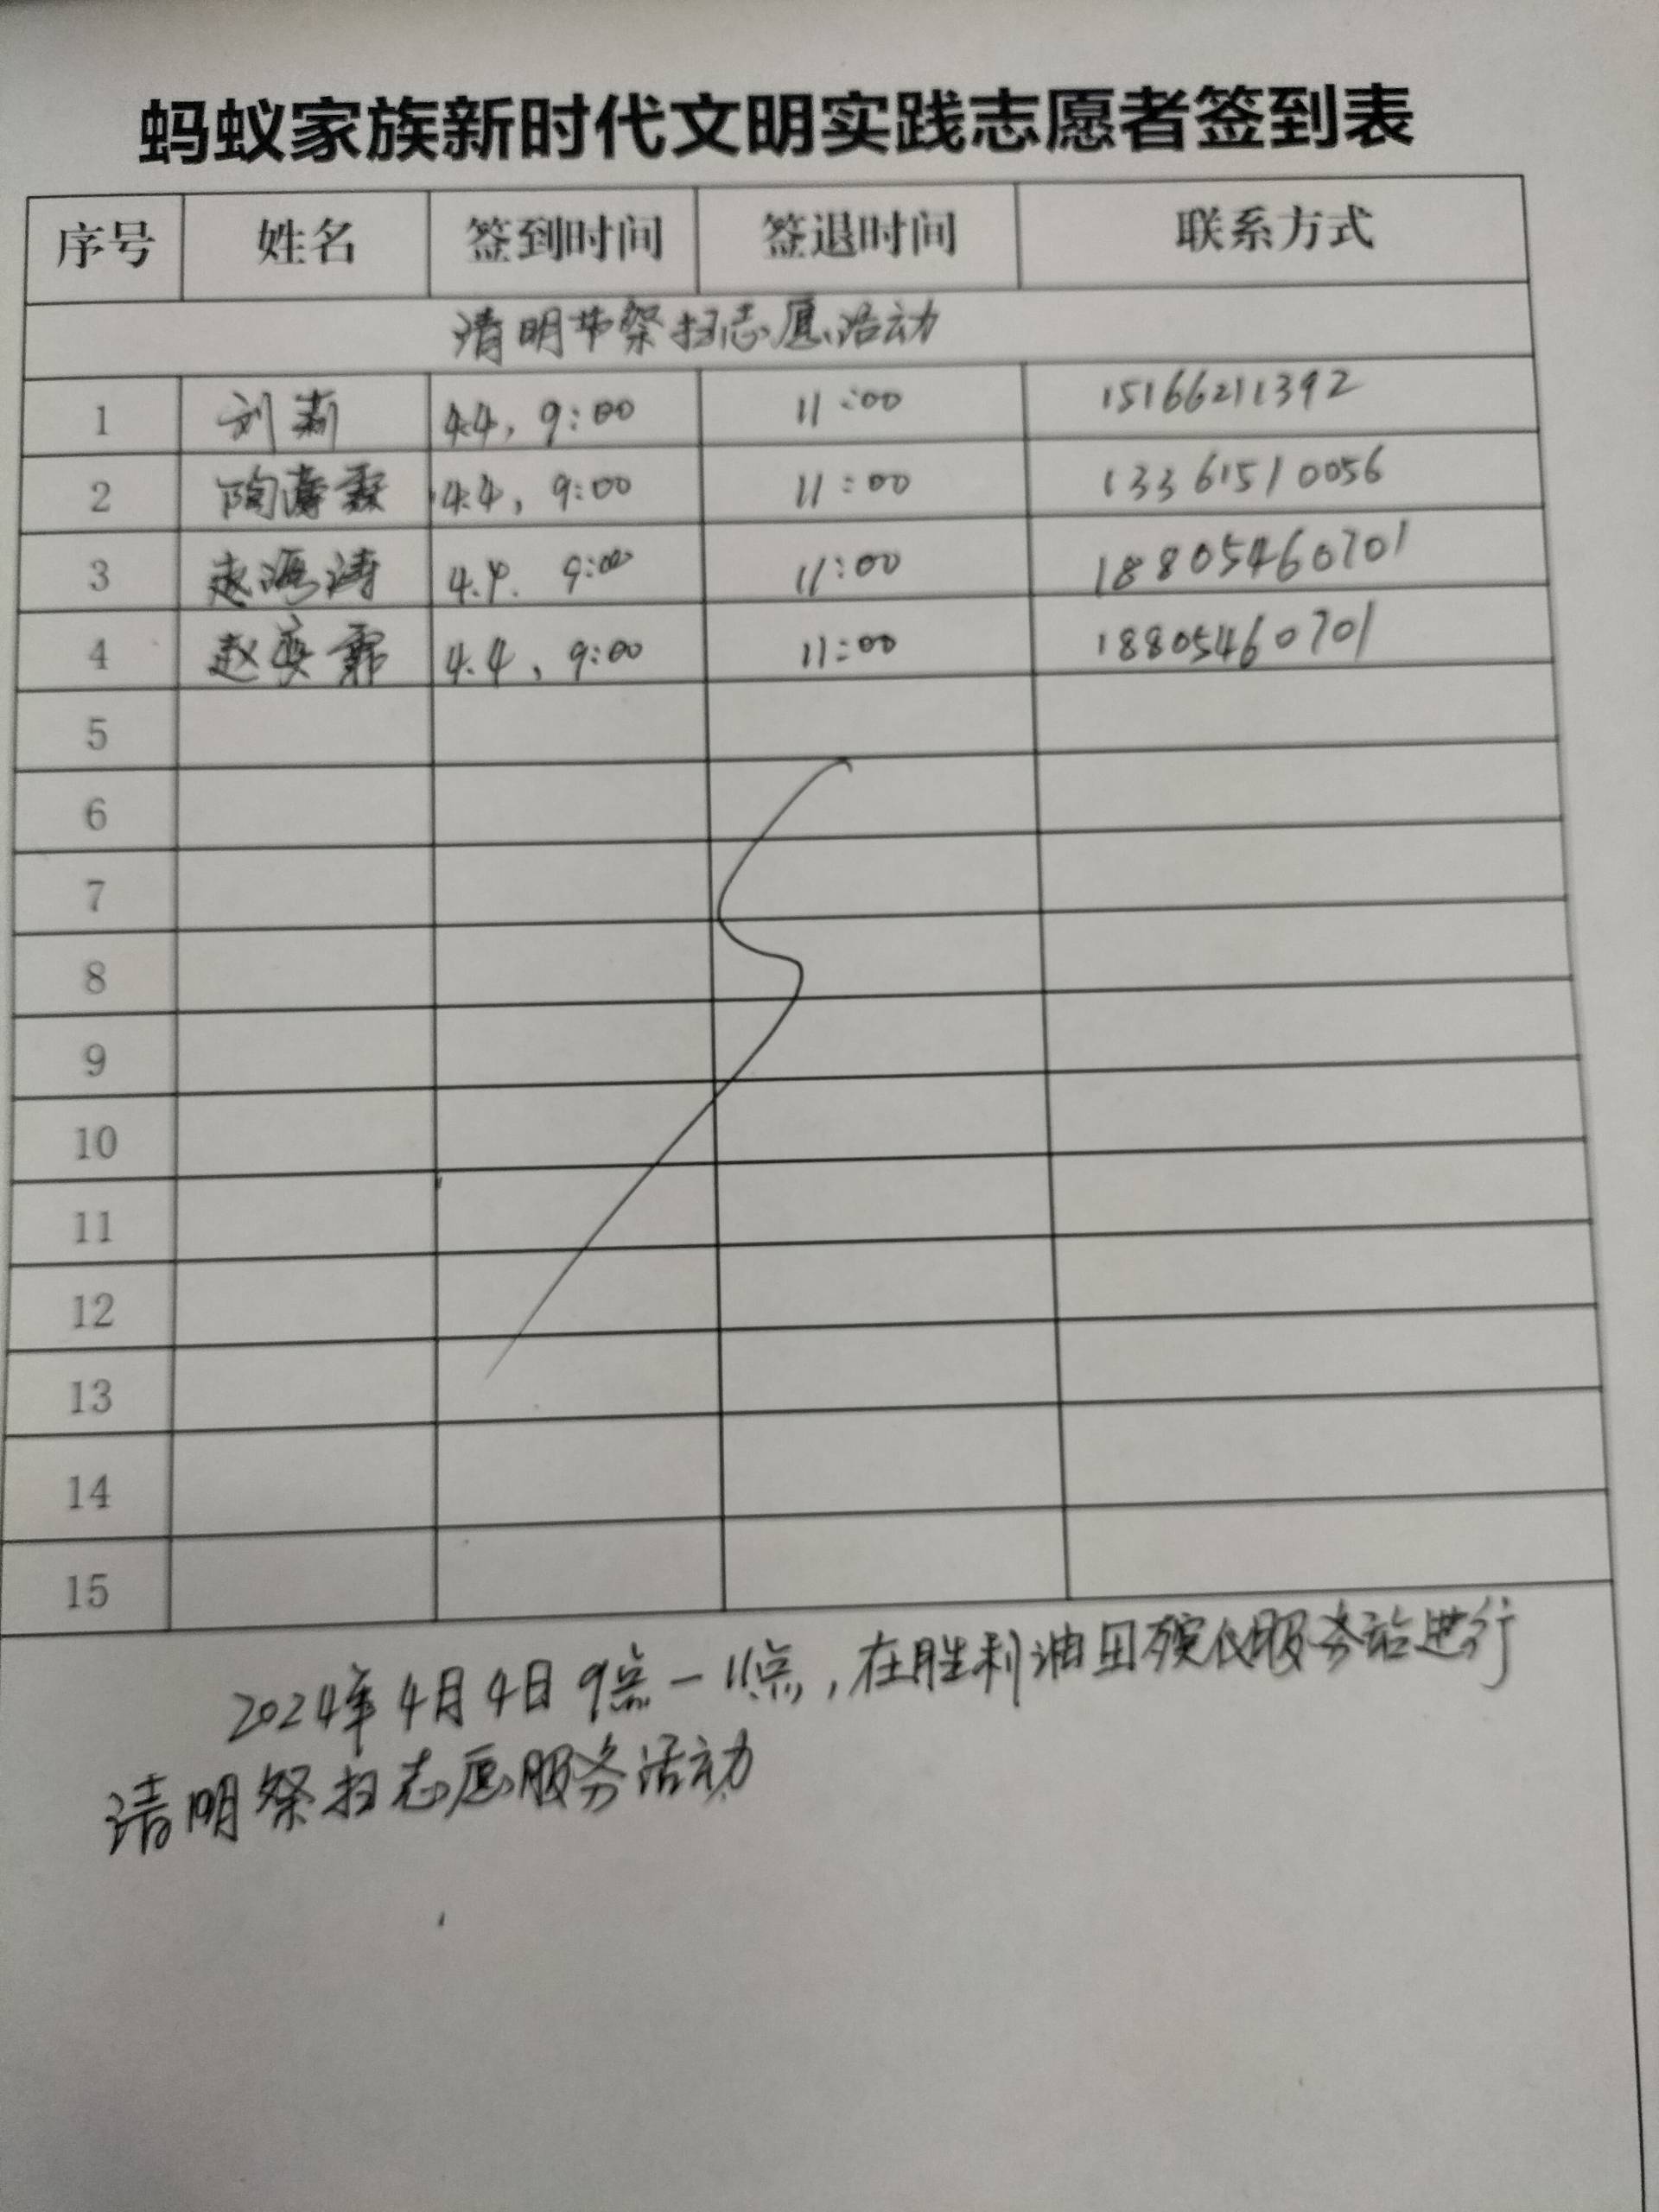 蚂蚁家族新时代文明实践志愿者签到表
序号 姓名 签到时间 签退时间 联系方式
清明节祭扫志愿活动
1 刘莉 4.4, 9:00 11:00 15166211392
2 陶 霖 4.4, 9:00 11:00 13361510056
3 赵海涛 4.4. 9:00 11:00 18805460701
4 赵奕霏 4.4, 9:00 11:00 18805460701
5
6
7
8
9
10
11
12
13
14
15
2024年4月4日9点-11点,在胜利油田殡仪服务站进行
清明祭扫志愿服务活动